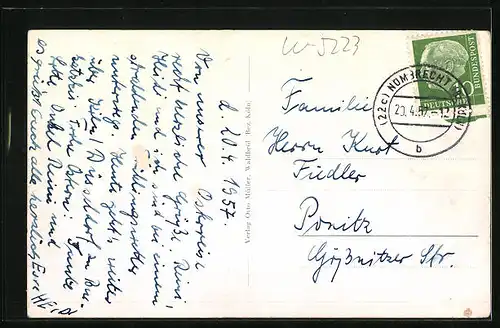 W-5223
d. 20.4.1957.
Von unserer Osterreise
recht herzliche Grüße. Reini,
Heidi und ich sind bei einem
strahlenden Frühlingswetter
unterwegs. Heute geht's weiter
über Köln, Düsseldorf,
Frohe Ostern!
Onkel Reini und
Es grüßt Euch alle herzlich Eure
Verlag Otto Müller, Waldbröl, Bez. Köln
Familie
Herrn Kurt
Fiedler
Ponitz
Gößnitzer Str.
(22c) NÜMBRECHT
20.4.57
b
DEUTSCHE
BUNDESPOST